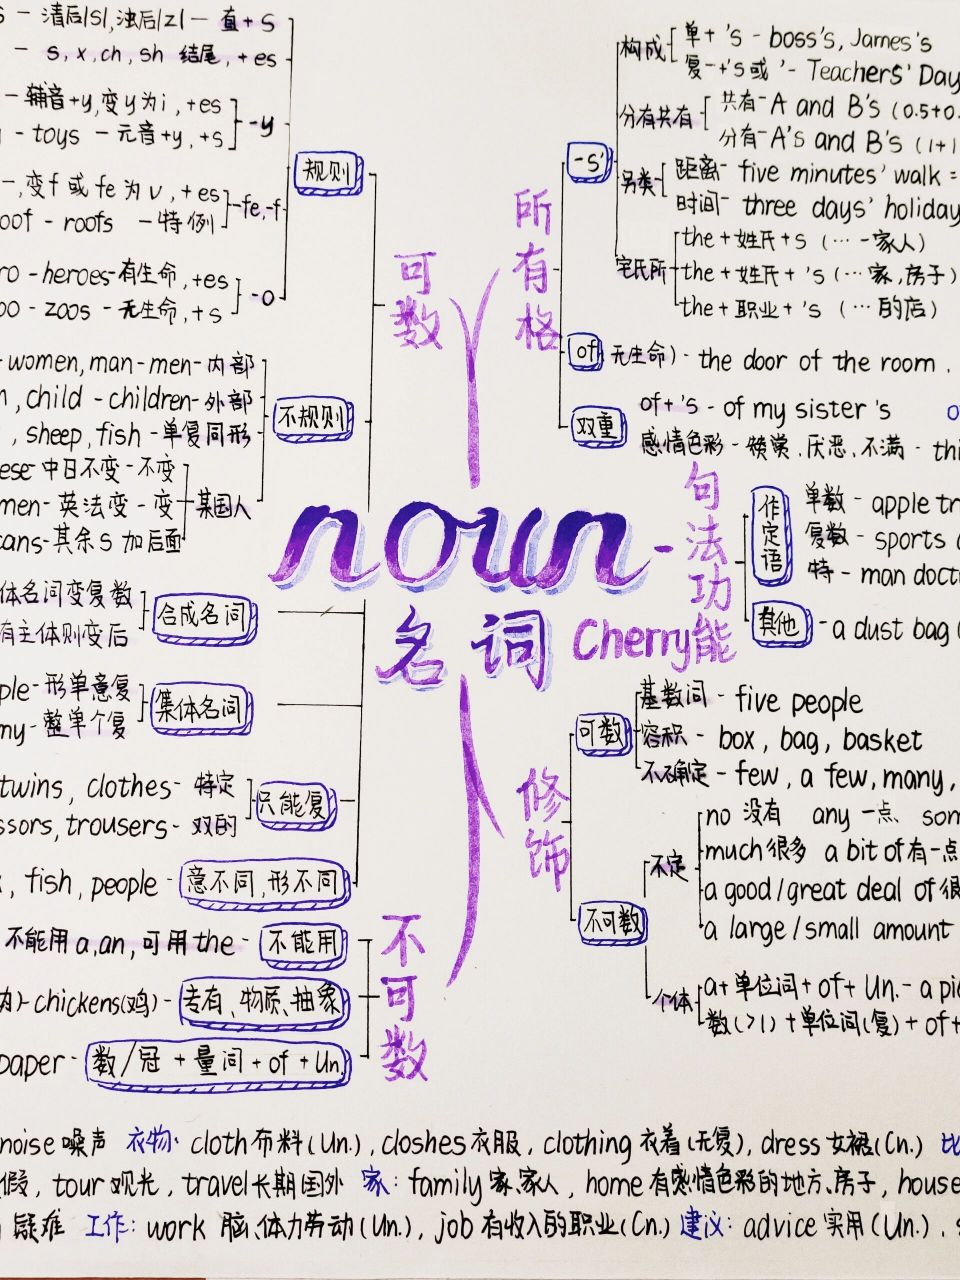 s - 清后|s|,浊后|z| - 直+s
- s,x,ch,sh 结尾,+es
- 辅音+y,变y为i,+es
- toys - 元音+y,+s
-y
-,变f或fe为v,+es
oof - roofs - 特例
-fe,-f
ro - heroes-有生命,+es
oo - zoos - 无生命,+s
-o
规则
-women,man-men-内部
n,child - children-外部
,sheep,fish-单复同形
ese-中日不变-不变
men-英法变-变
cans-其余s加后面
某国人
不规则
可数
体名词变复数
有主体则变后
合成名词
ple-形单意复
my-整单个复
集体名词
twins, clothes- 特定
ssors, trousers- 双的
只能复
, fish, people - 意不同,形不同
不能用 a,an,可用 the - 不能用
肉)-chickens(鸡) - 专有、物质、抽象
paper - 数/冠 + 量词 + of + Un.
不可数
noun
名词
Cherry
所有格
-s'
构成
单+'s - boss's, James's
复-+'s或'- Teachers' Day
分有共有
共有-A and B's (0.5+0.
分有-A's and B's (1+1
另类
距离- five minutes' walk =
时间- three days' holiday
宅氏所
the+姓氏+s (…一家人)
the+姓氏+'s (…家,房子)
the+职业+'s (…的店)
of
无生命) - the door of the room .
双重
of+'s - of my sister's
感情色彩 - 赞赏、厌恶、不满 - thi
句法功能
作定语
单数 - apple tr
复数 - sports
特 - man docto
其他 - a dust bag (
修饰
可数
基数词 - five people
容积 - box, bag, basket
不确定 - few, a few, many,
不可数
不定
no 没有 any 一点 som
much很多 a bit of有一点
a good/great deal of很
a large/small amount
个体
a+单位词+of+Un.- a pie
数(>1)+单位词(复)+of+
noise 噪声 衣物: cloth布料(Un.), closhes衣服, clothing 衣着(无复), dress 女裙(Cn.) 比
假, tour 观光, travel长期国外 家: family家.家人, home有感情色彩的地方.房子, house
疑难 工作: work 脑.体力劳动(Un.), job 有收入的职业(Cn.) 建议: advice 实用(Un.), s